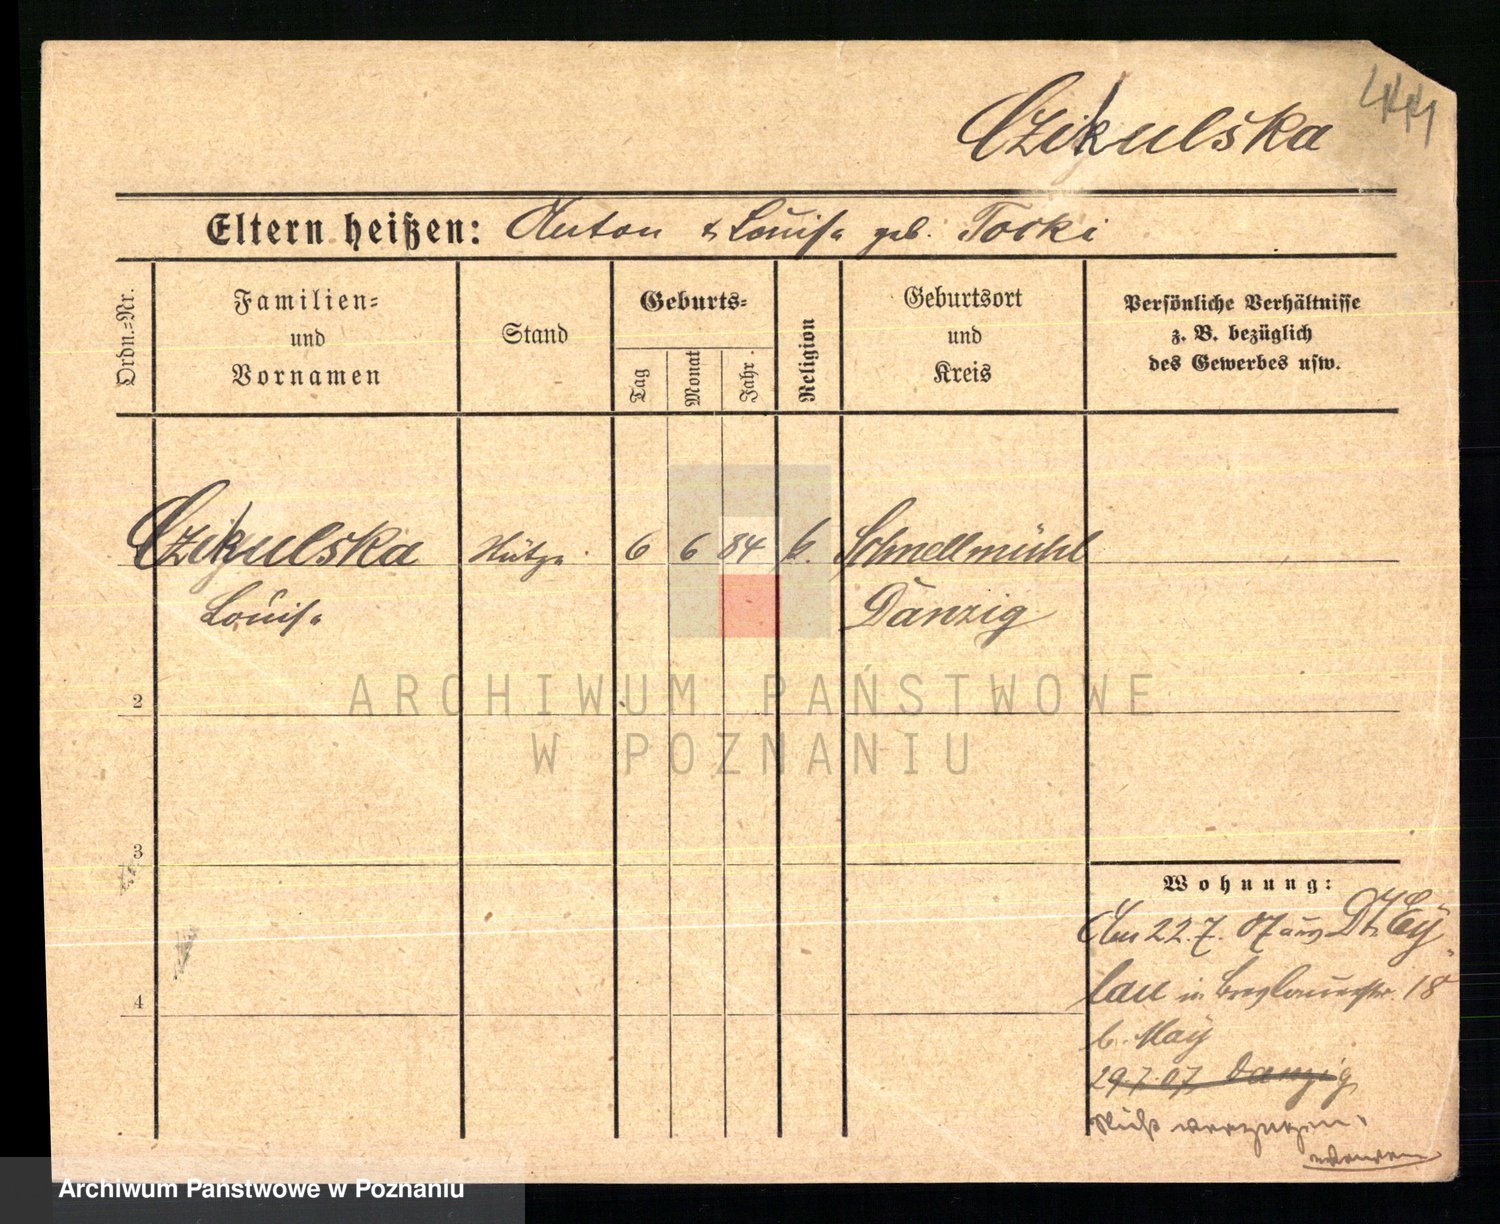 441
Czikulska
Eltern heißen: Anton & Louise geb. Tocki
Ordn.=Nr.
Familien=
und
Vornamen
Stand
Geburts=
Tag
Monat
Jahr.
Religion
Geburtsort
und
Kreis
Persönliche Verhältnisse
z. B. bezüglich
des Gewerbes usw.
Czikulska Stütze 6 6 84 k. Schnellmühl
Louise Danzig
2
3
4
Wohnung:
Am 22.7.07 aus Dt. Ey
lau in Breslauerstr. 18
b. May
29.7.07 Danzig
Nicht verzogen.
ARCHIWUM PAŃSTWOWE
W POZNANIU
Archiwum Państwowe w Poznaniu